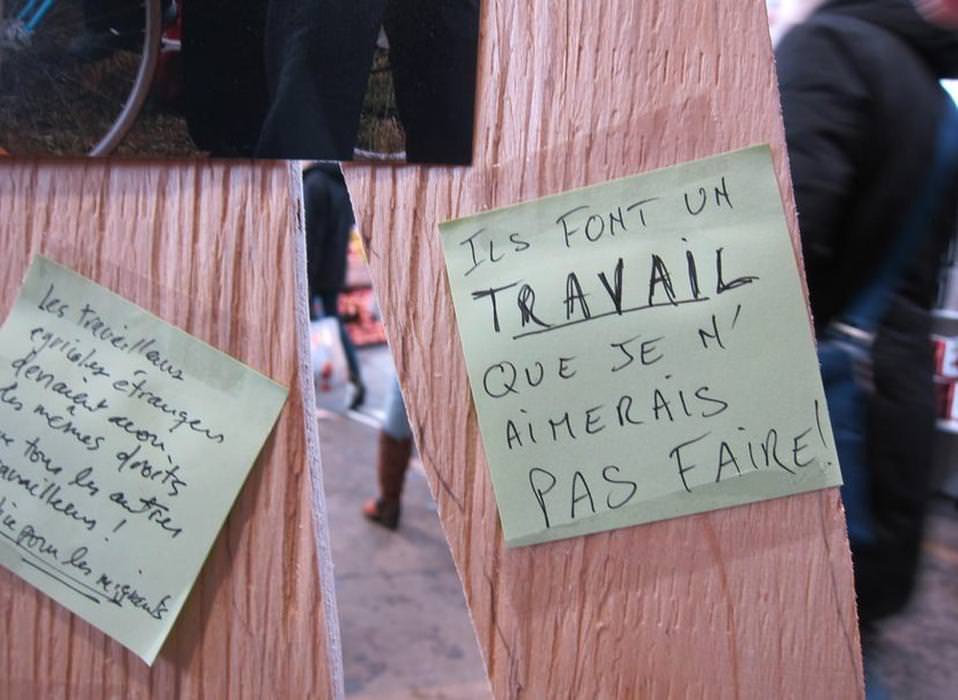 Les travailleurs
agricoles étrangers
devraient avoir
les mêmes droits
tous les autres
travailleurs !
pour les migrants
ILS FONT UN
TRAVAIL
QUE JE N'
AIMERAIS
PAS FAIRE!